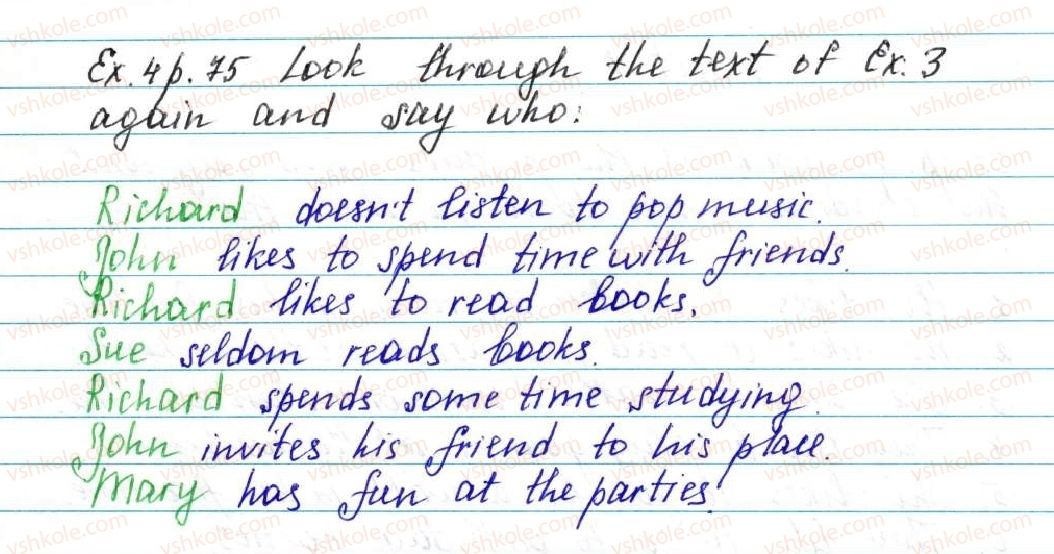 Ex. 4 p. 75 Look through the text of Ex. 3
again and say who:
Richard doesn't listen to pop music.
John likes to spend time with friends.
Richard likes to read books.
Sue seldom reads books.
Richard spends some time studying.
John invites his friend to his place.
Mary has fun at the parties.